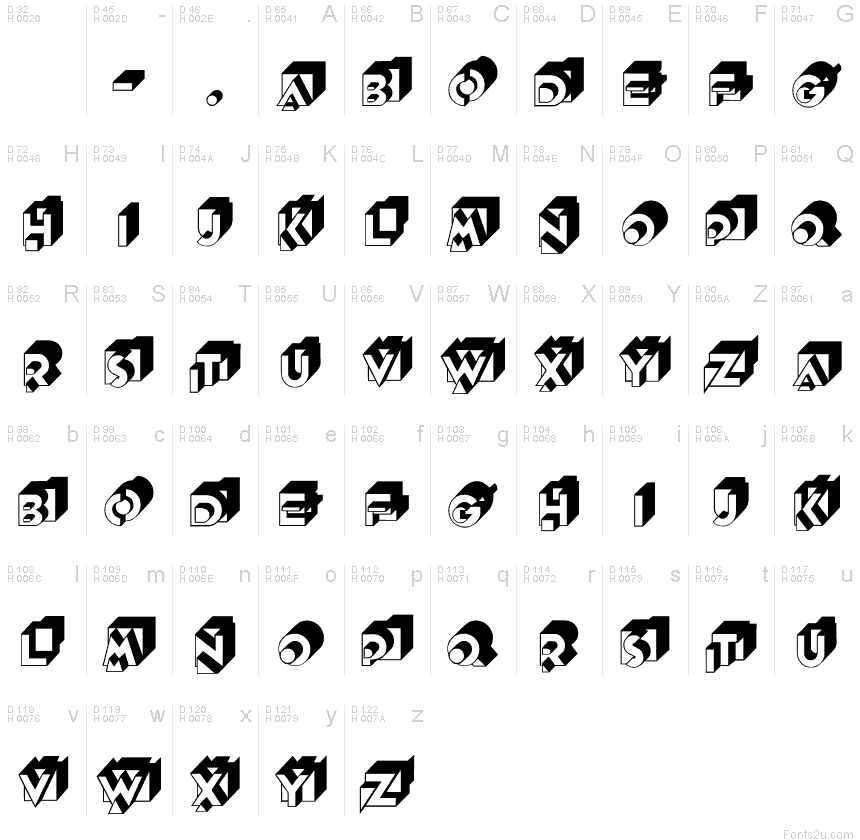 D 32 D 45 - D 46 . D 65 A D 66 B D 67 C D 68 D D 69 E D 70 F D 71 G
H 0020 H 002D H 002E H 0041 H 0042 H 0043 H 0044 H 0045 H 0046 H 0047
- . A B C D E F G
D 72 H D 73 I D 74 J D 75 K D 76 L D 77 M D 78 N D 79 O D 80 P D 81 Q
H 0048 H 0049 H 004A H 004B H 004C H 004D H 004E H 004F H 0050 H 0051
H I J K L M N O P Q
D 82 R D 83 S D 84 T D 85 U D 86 V D 87 W D 88 X D 89 Y D 90 Z D 97 a
H 0052 H 0053 H 0054 H 0055 H 0056 H 0057 H 0058 H 0059 H 005A H 0061
R S T U V W X Y Z A
D 98 b D 99 c D 100 d D 101 e D 102 f D 103 g D 104 h D 105 i D 106 j D 107 k
H 0062 H 0063 H 0064 H 0065 H 0066 H 0067 H 0068 H 0069 H 006A H 006B
B C D E F G H I J K
D 108 l D 109 m D 110 n D 111 o D 112 p D 113 q D 114 r D 115 s D 116 t D 117 u
H 006C H 006D H 006E H 006F H 0070 H 0071 H 0072 H 0073 H 0074 H 0075
L M N O P Q R S T U
D 118 v D 119 w D 120 x D 121 y D 122 z
H 0076 H 0077 H 0078 H 0079 H 007A
V W X Y Z
Fonts2u.com